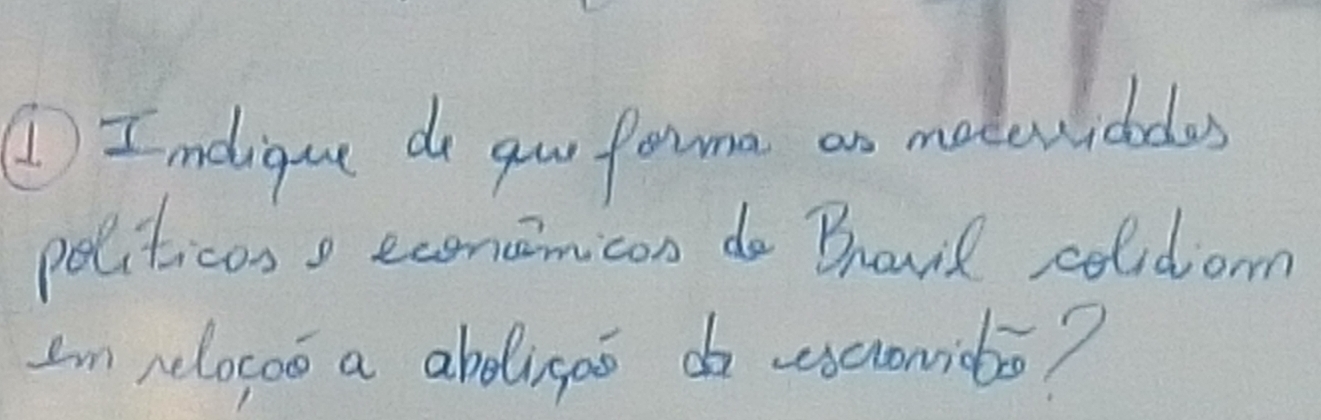 ① Indique de que forma as necessidades
políticas e econômicas do Brasil colidiam
em relação a abolição da escravidão?